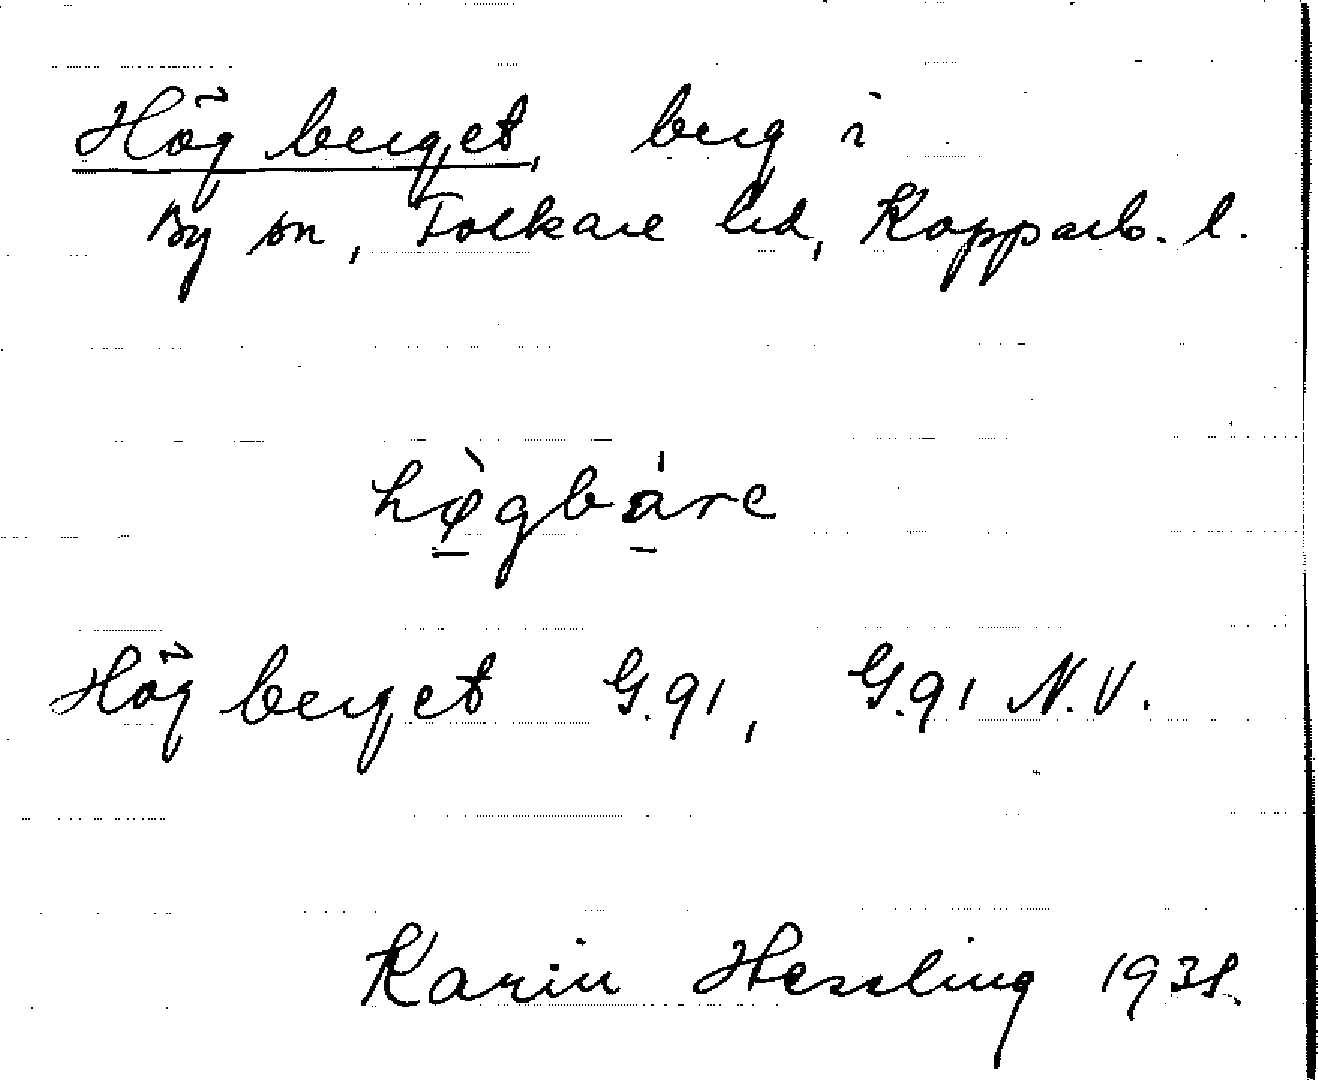 Högberget, berg i
By sn, Folkare hd, Kopparb. l.
hø̀gbáre
Högberget G.91, G.91 N.V.
Karin Hessling 1938.